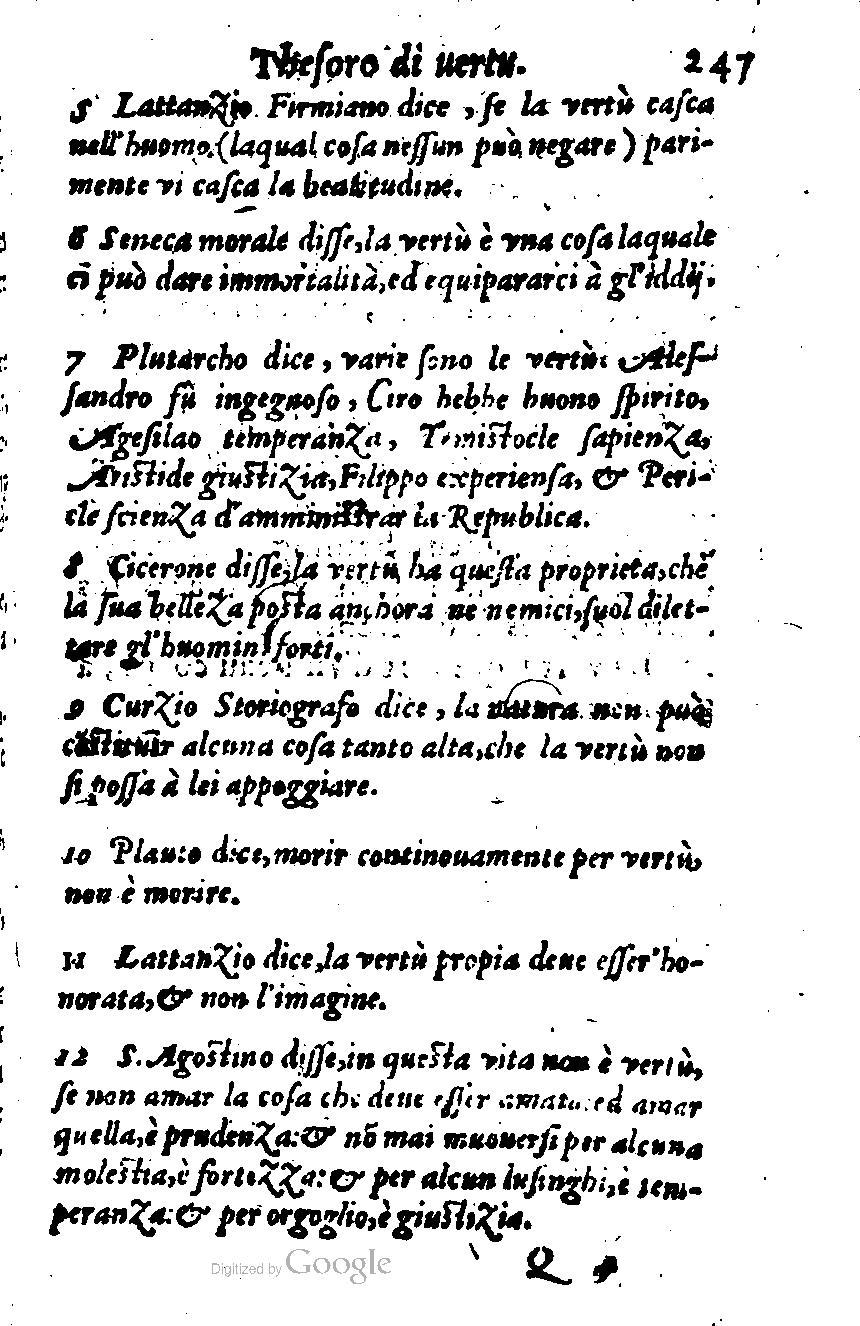 Thesoro di uertu. 247
5 Lattanzio Firmiano dice, se la vertù casca
nell'huomo, (laqual cosa nessun può negare) pari-
mente vi casca la beatitudine.
6 Seneca morale disse, la vertù è vna cosa laquale
ci può dare immortalità, ed equipararci à gl'iddij.
7 Plutarcho dice, varie sono le vertù: Ales-
sandro fù ingegnoso, Ciro hebbe buono spirito,
Agesilao temperanza, Temistocle sapienza,
Aristide giustizia, Filippo experiensa, & Peri-
cle scienza d'amministrar la Republica.
8 Cicerone disse, la vertù ha questa proprieta, che
la sua belleza posta anchora ne nemici, suol dilet-
tare gl'huomini forti.
9 Curzio Storiografo dice, la natura non può
costituir alcuna cosa tanto alta, che la vertù non
si possa à lei appoggiare.
10 Plauto dice, morir continouamente per vertù,
non è morire.
11 Lattanzio dice, la vertù propia deue esser'ho-
norata, & non l'imagine.
12 S. Agostino disse, in questa vita non è vertù,
se non amar la cosa che deue esser amata: ed amar
quella, è prudenza: & nō mai muouersi per alcuna
molestia, è fortezza: & per alcun lusinghi, è tem-
peranza: & per orgoglio, è giustizia.
Q
Digitized by Google